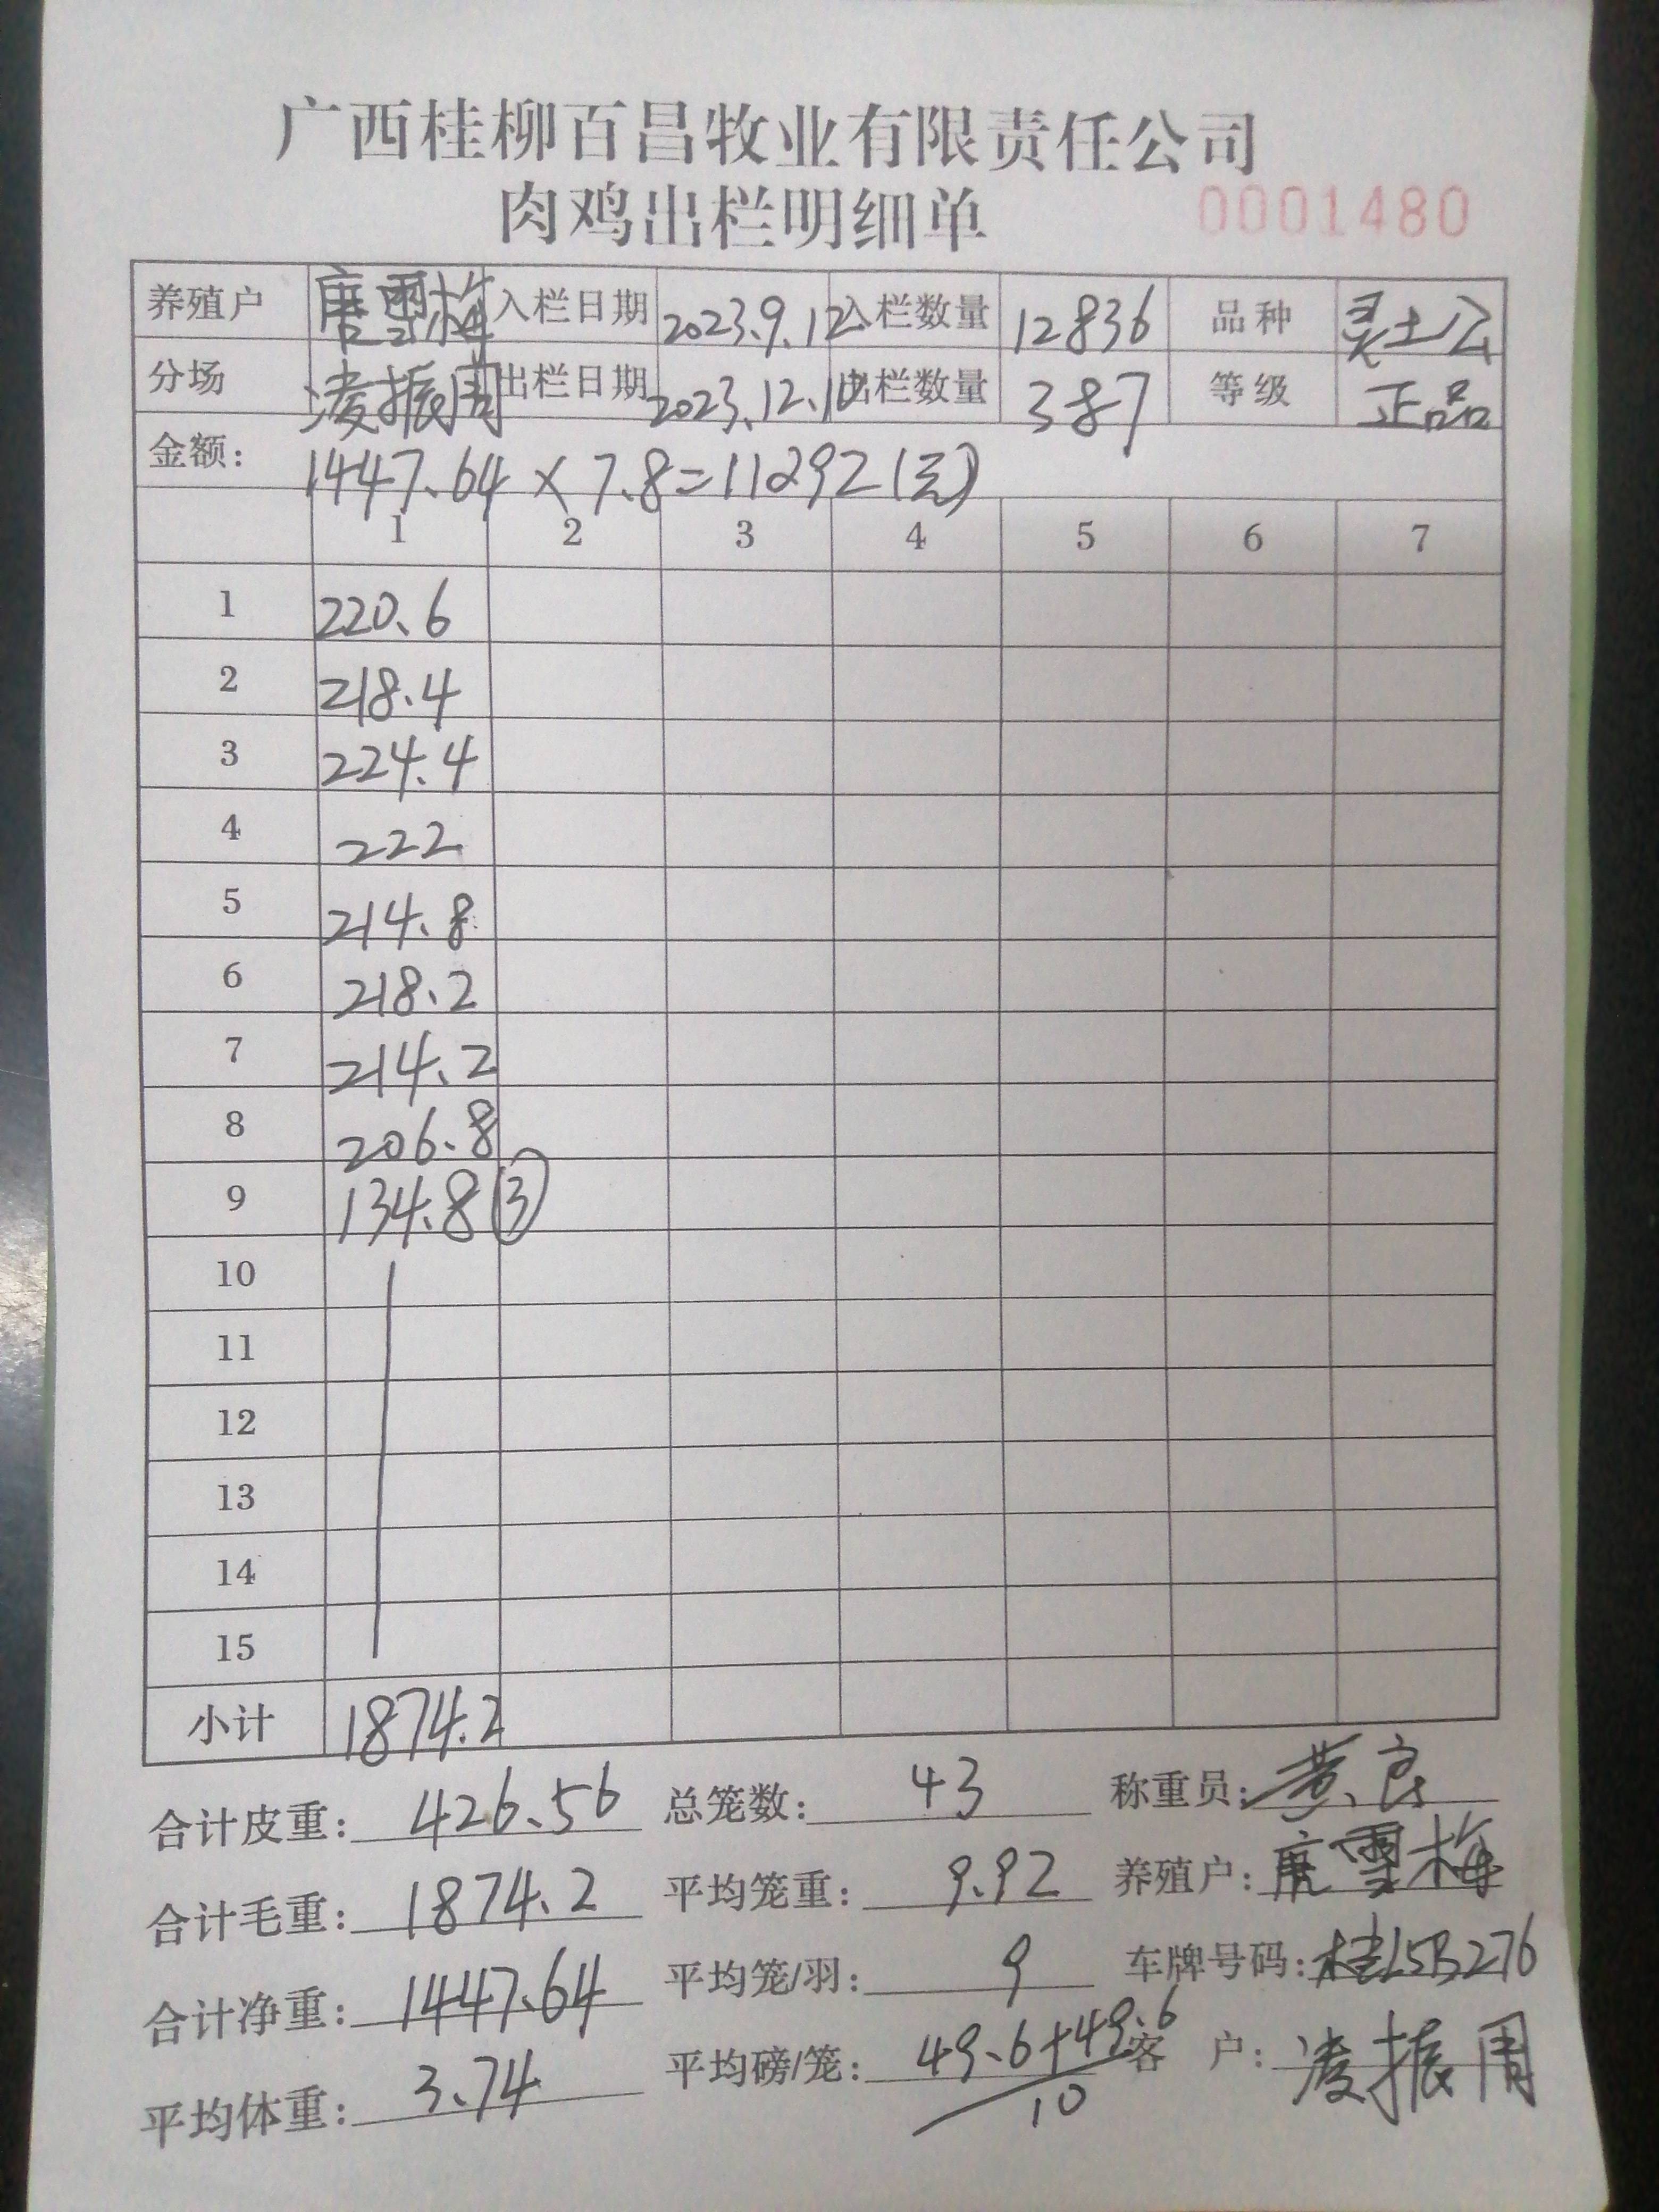 广西桂柳百昌牧业有限责任公司
肉鸡出栏明细单 0001480
养殖户 唐雪梅 入栏日期 2023.9.12 入栏数量 12836 品种 灵土公
分场 凌振周 出栏日期 2023.12.10 出栏数量 387 等级 正品
金额: 1447.64 × 7.8=11292(元)
1 2 3 4 5 6 7
1 220.6
2 218.4
3 224.4
4 222
5 214.8
6 218.2
7 214.2
8 206.8
9 134.8 ③
10
11
12
13
14
15
小计 1874.2
合计皮重: 426.56 总笼数: 43 称重员: 黄良
合计毛重: 1874.2 平均笼重: 9.92 养殖户: 唐雪梅
合计净重: 1447.64 平均笼/羽: 9 车牌号码: 桂L5B276
平均体重: 3.74 平均磅/笼: 49.6+49.6/10 客户: 凌振周